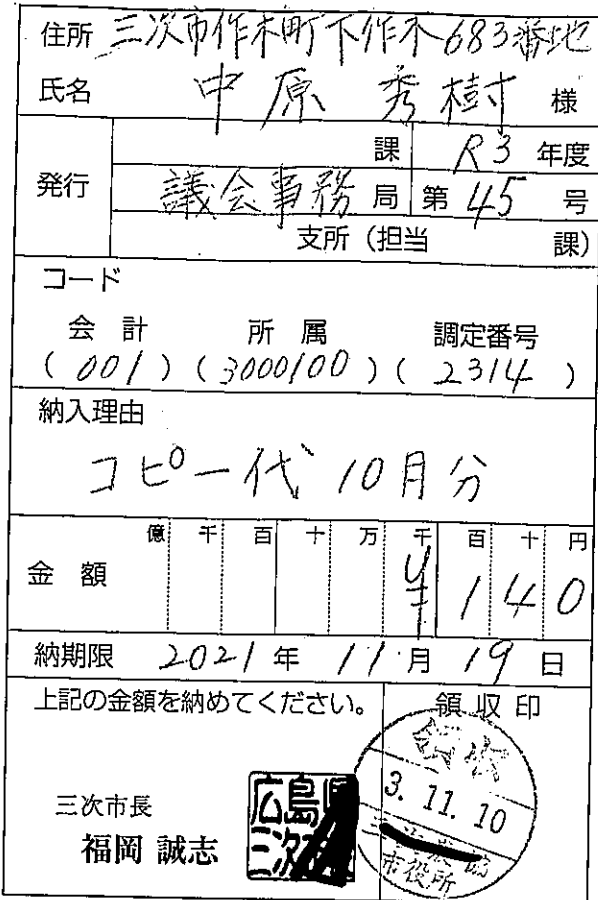 住所 三次市作木町下作木683番地
氏名 中原 秀樹 様
課 R3 年度
発行 議会事務局 第 45 号
支所(担当 課)
コード
会計 所属 調定番号
(001)(3000100)(2314)
納入理由
コピー代 10月分
億 千 百 十 万 千 百 十 円
金額 ¥140
納期限 2021年 11月 19日
上記の金額を納めてください。 領収印
3.11.10
三次市長 広島県
福岡 誠志 三次
市役所